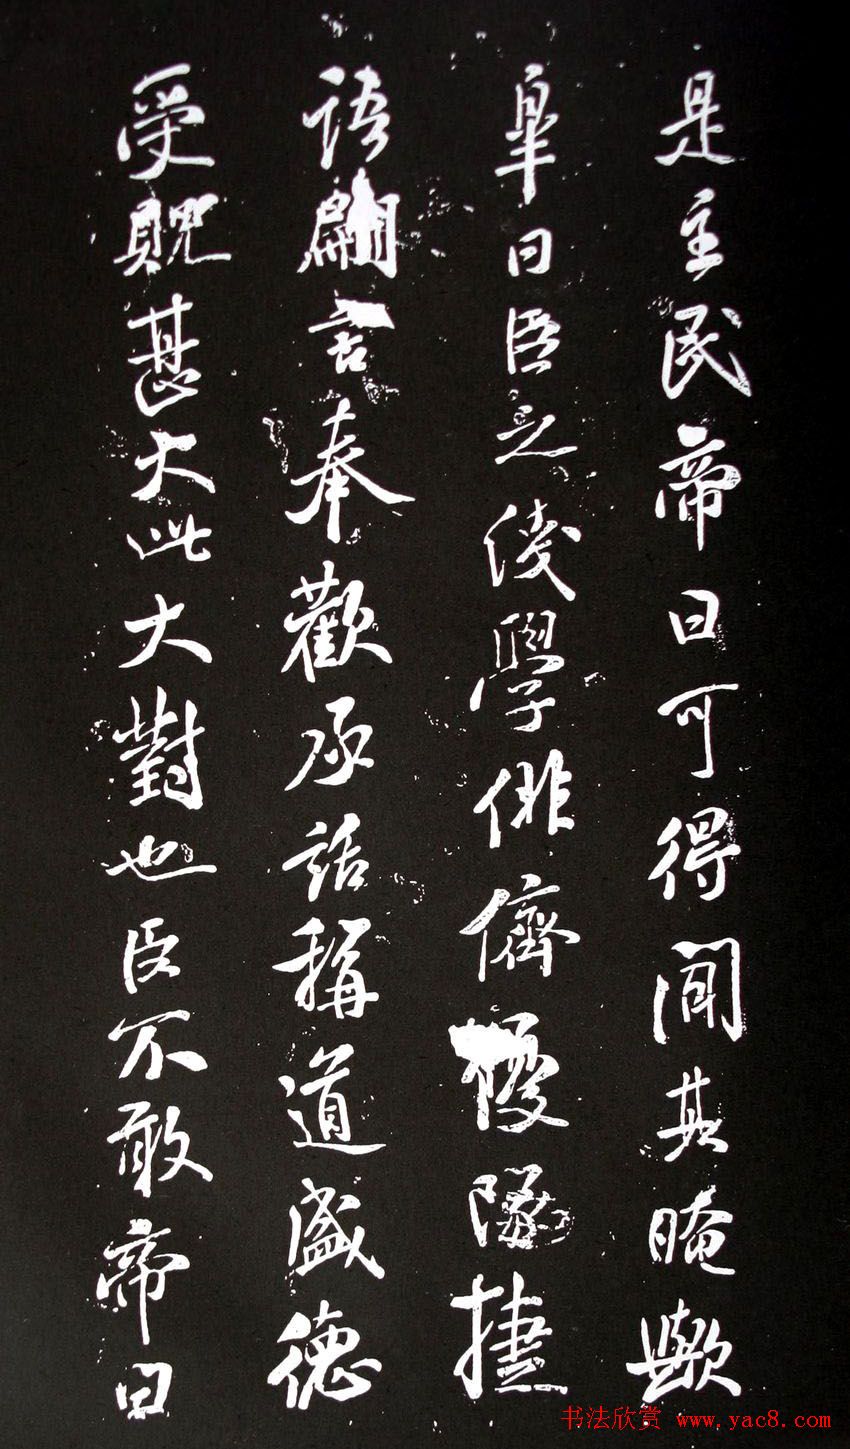 是主民帝曰可得聞其晻歟
皋曰臣之俴學俳儕優隊捷
語翩言奉歡承話稱道盛德
受貺甚大此大對也臣不敢帝曰
书法欣赏 www.yac8.com